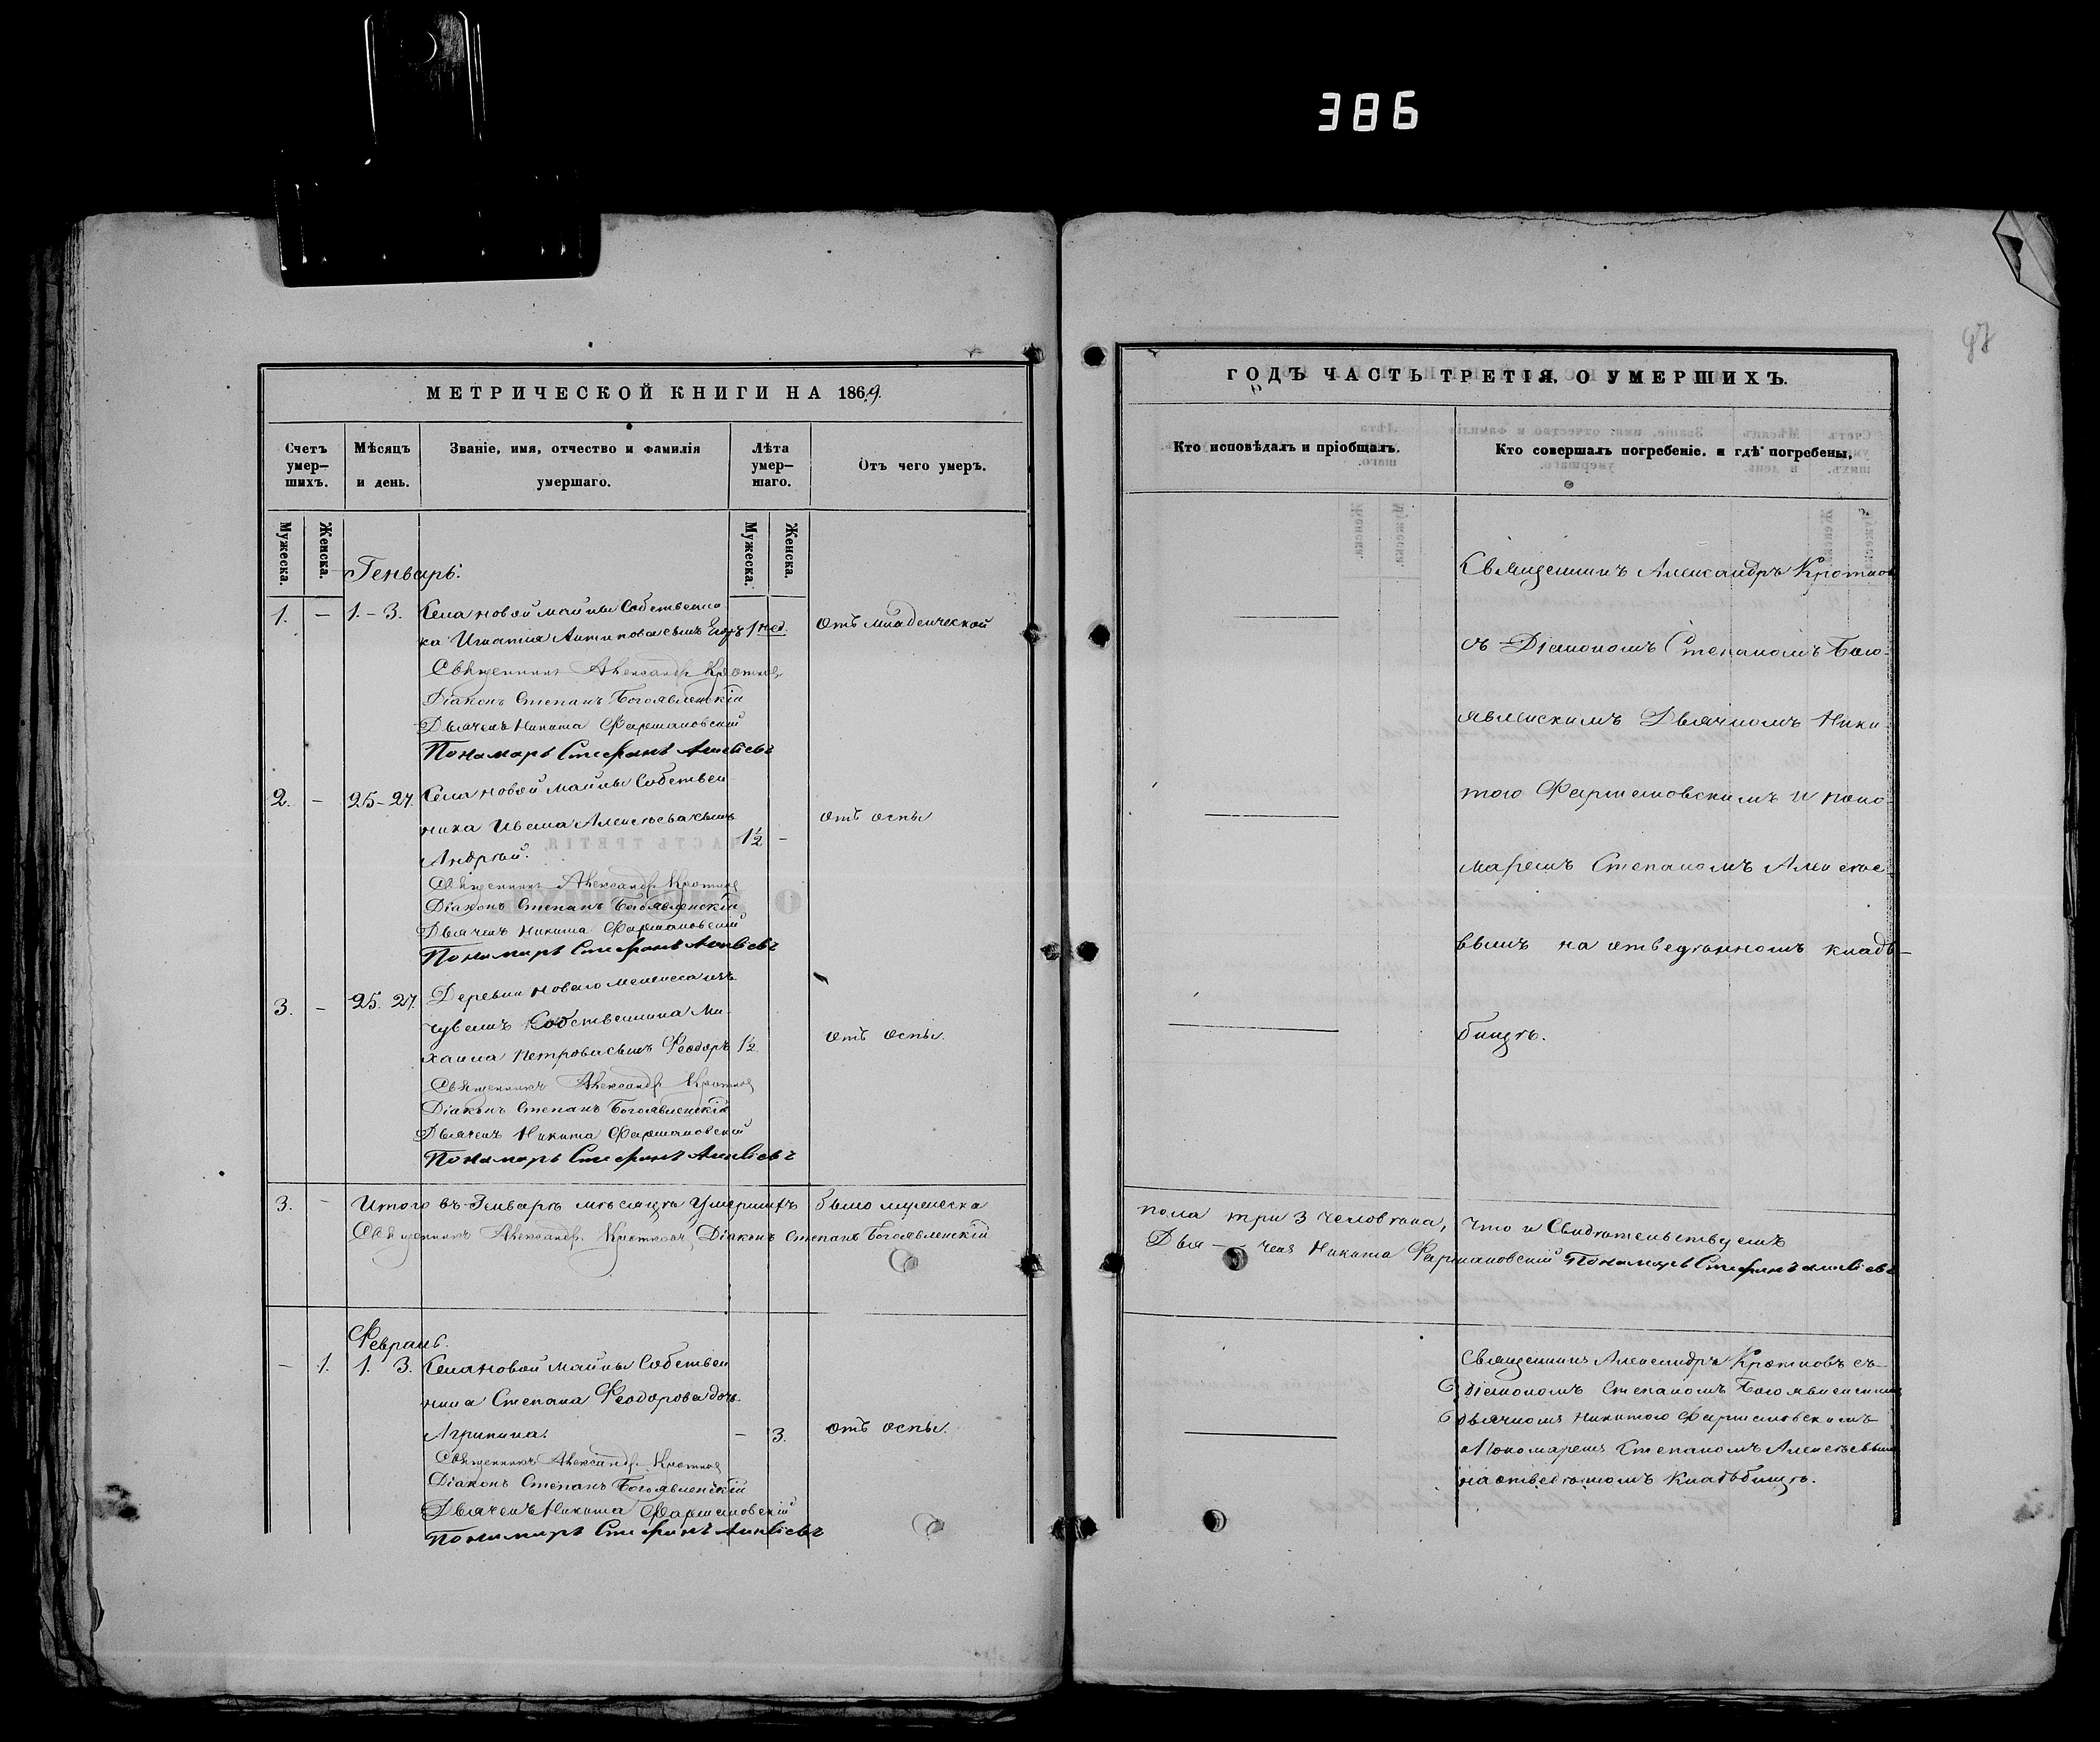 386
97
МЕТРИЧЕСКОЙ КНИГИ НА 1869.
Счетъ умер-шихъ.
Мѣсяцъ и день.
Званіе, имя, отчество и фамилія умершаго.
Лѣта умер-шаго.
Отъ чего умеръ.
Мужеска.
Женска.
Мужеска.
Женска.
Генварь:
1. — 1.-3. Села новой майны Собственни
ка Игнатія Антипова сынъ Егоръ 1 нед. отъ младенческой
Священникъ Александръ Кротковъ
Діаконъ Степанъ Богоявленскій
Дьячекъ Никита Фармаковскій
Пономарь Стефанъ Алексѣевъ
2. — 25-27. Села новой майны Собствен
ника Ивана Алексѣева сынъ 1½ — отъ оспы
Андрей.
Священникъ Александръ Кротковъ
Діаконъ Степанъ Богоявленскій
Дьячекъ Никита Фармаковскій
Пономарь Стефанъ Алексѣевъ
3. — 25. 27. Деревни новаго
Собственника Ми-
хаила Петрова сынъ Феодоръ 1½. отъ оспы.
Священникъ Александръ Кротковъ
Діаконъ Степанъ Богоявленскій
Дьячекъ Никита Фармаковскій
Пономарь Стефанъ Алексѣевъ
3. — Итого въ Генварѣ мѣсяцѣ умершихъ было мужеска
Священникъ Александръ Кротковъ Діаконъ Степанъ Богоявленскій
Февраль.
— 1. 1. 3. Села новой майны Собствен
ника Степана Феодорова дочь
Агрипина. — 3. отъ оспы.
Священникъ Александръ Кротковъ
Діаконъ Степанъ Богоявленскій
Дьячекъ Никита Фармаковскій
Пономарь Стефанъ Алексѣевъ
ГОДЪ ЧАСТЬ ТРЕТІЯ, О УМЕРШИХЪ.
Кто исповѣдалъ и пріобщалъ.
Кто совершалъ погребеніе, и гдѣ погребены.
Священникъ Александръ Кротковъ
съ Діакономъ Степаномъ Бого-
явленскимъ Дьячкомъ Ники
тою Фармаковскимъ и поно-
маремъ Степаномъ Алексѣе-
вымъ на отведенномъ кладъ-
бищѣ.
пола три 3 человѣка, что и Свидѣтельствуемъ
Дья-чекъ Никита Фармаковскій Пономарь Стефанъ Алексѣевъ
Священникъ Александръ Кротковъ съ
Діакономъ Степаномъ Богоявленскимъ
Дьячкомъ Никитою Фармаковскимъ
и Пономаремъ Степаномъ Алексѣевымъ
на отведенномъ Кладъбищѣ.